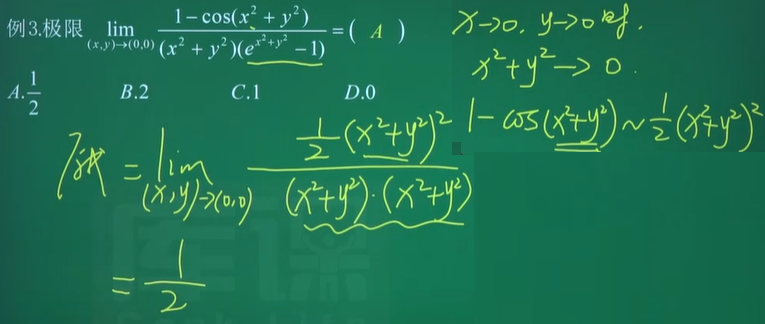 例3.极限 lim(x,y)→(0,0) (1−cos(x²+y²))/((x²+y²)(e^(x²+y²)−1)) =( A )
A.1/2 B.2 C.1 D.0
x→0. y→0时.
x²+y²→0.
1−cos(x²+y²)~1/2(x²+y²)²
原式 = lim(x,y)→(0,0) (1/2(x²+y²)²)/((x²+y²)·(x²+y²))
= 1/2